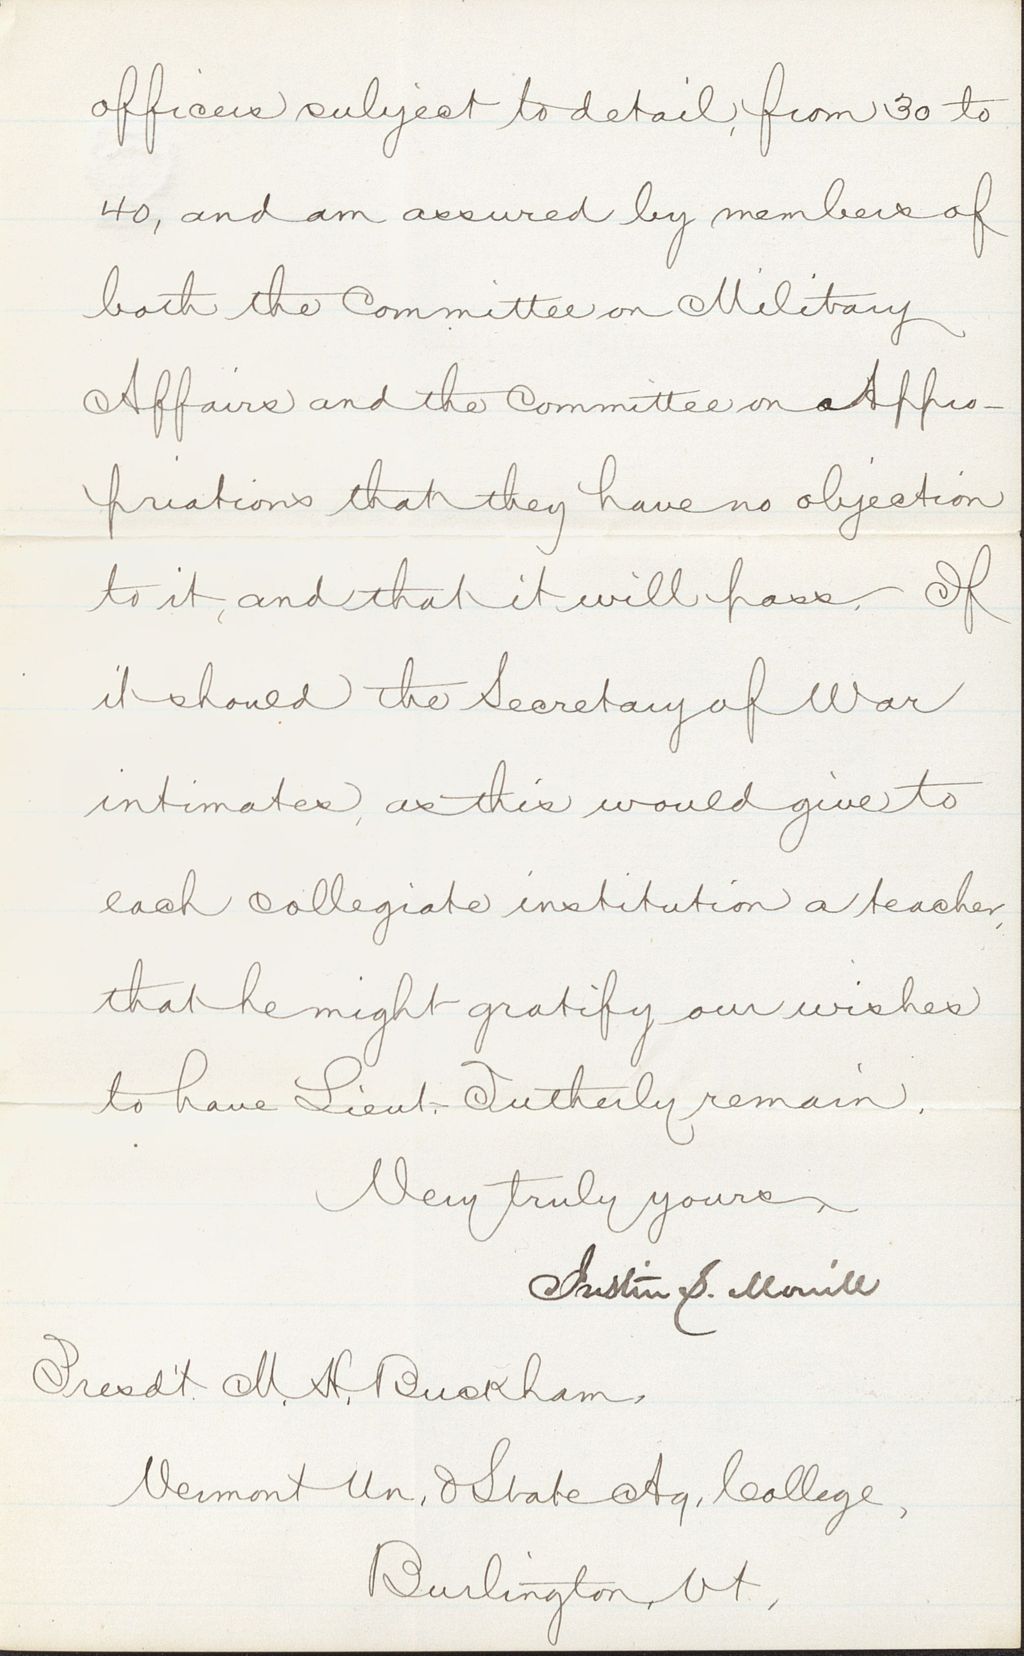 officers subject to detail, from 30 to
40, and am assured by members of
both the Committee on Military
Affairs and the Committee on Appro-
priations that they have no objection
to it, and that it will pass. If
it should the Secretary of War
intimates, as this would give to
each collegiate institution a teacher,
that he might gratify our wishes
to have Lieut. Tutherly remain.
Very truly yours,
Justin S. Morrill
Presd't. M. H. Buckham,
Vermont Un. & State Ag. College,
Burlington, Vt.,